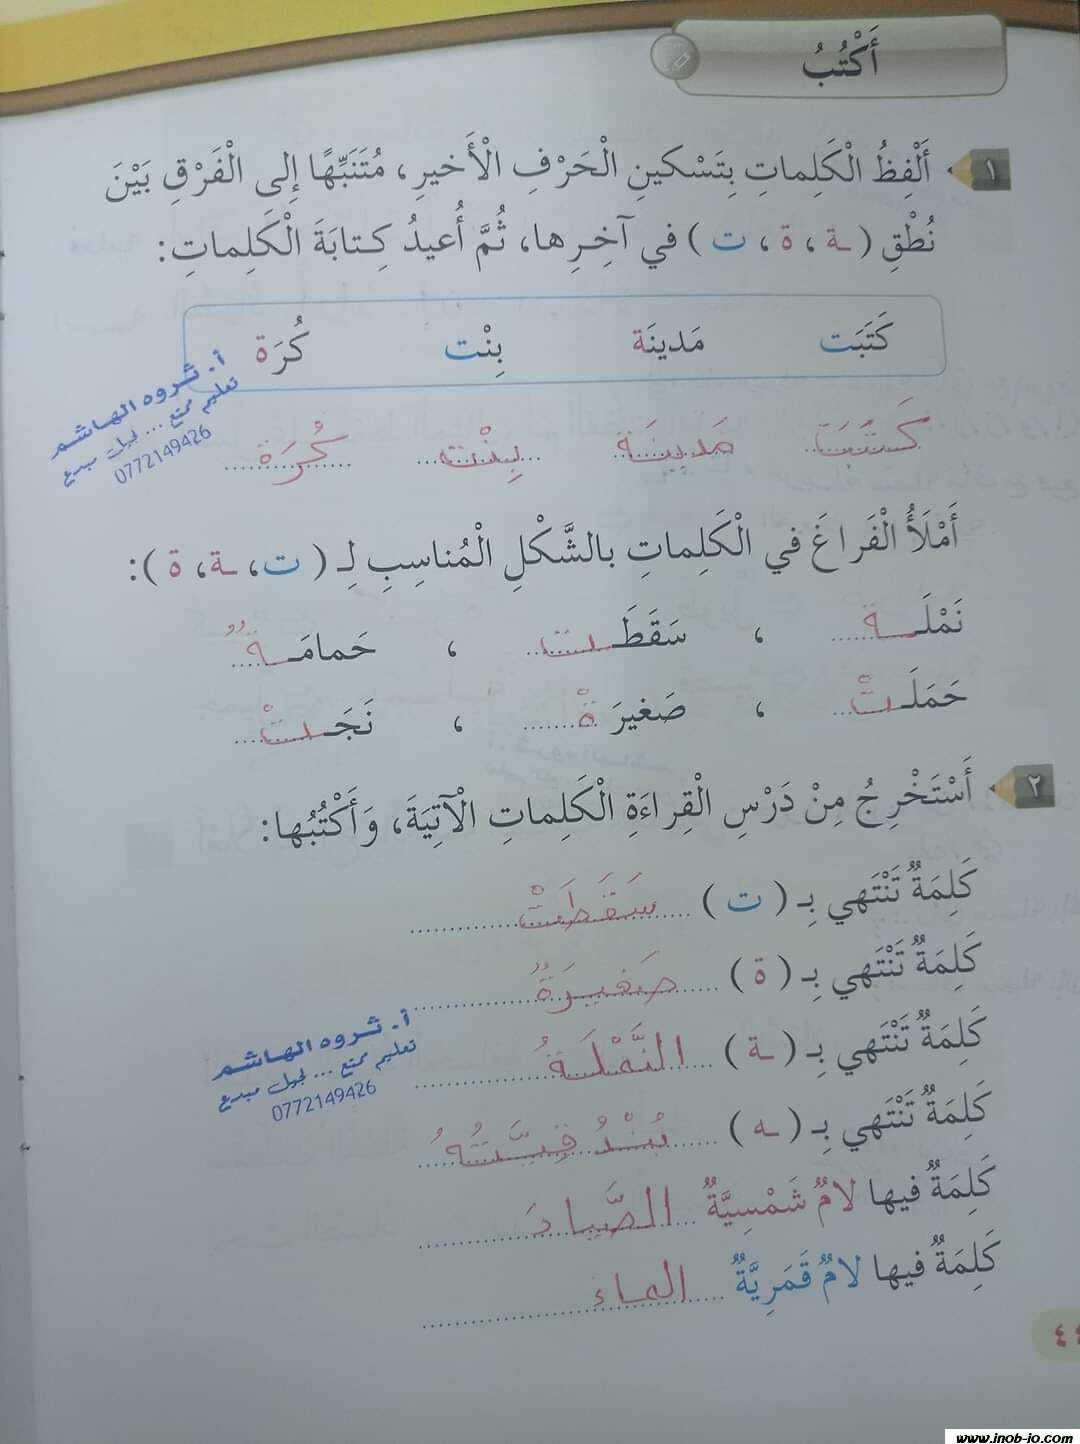 أَكْتُبُ
١ أَلْفِظُ الْكَلِماتِ بِتَسْكينِ الْحَرْفِ الْأَخيرِ، مُتَنَبِّهًا إِلى الْفَرْقِ بَيْنَ
نُطْقِ (ـة، ة، ت) في آخِرِها، ثُمَّ أُعيدُ كِتابَةَ الْكَلِماتِ:
كَتَبَت مَدينَة بِنْت كُرَة
كَتَبَت مَدينَة بِنْت كُرَة
أ. ثروه الهاشم
تعليم ممتع ... لجيل مبدع
0772149426
أَمْلَأُ الْفَراغَ في الْكَلِماتِ بالشَّكْلِ الْمُناسِبِ لِـ (ت، ـة، ة):
نَمْلَـة ، سَقَطَـت ، حَمامَـةٌ
حَمَلَـتْ ، صَغيرَةْ ، نَجَـتْ
٢ أَسْتَخْرِجُ مِنْ دَرْسِ الْقِراءَةِ الْكَلِماتِ الْآتِيَةَ، وَأَكْتُبُها:
كَلِمَةٌ تَنْتَهي بِـ (ت) سَقَطَتْ
كَلِمَةٌ تَنْتَهي بِـ (ة) صَغيرَةٌ
كَلِمَةٌ تَنْتَهي بِـ (ـة) النَّمْلَةُ
كَلِمَةٌ تَنْتَهي بِـ (ـه) بُنْدُقِيَّتُهُ
كَلِمَةٌ فيها لامٌ شَمْسِيَّةٌ الصَّيادَ
كَلِمَةٌ فيها لامٌ قَمَرِيَّةٌ الماء
أ. ثروه الهاشم
تعليم ممتع ... لجيل مبدع
0772149426
www.inob-io.com